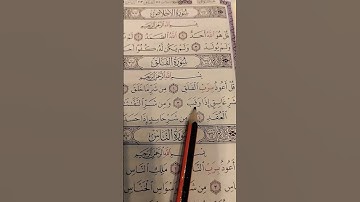 سُورَةُ الإِخْلَاصِ
بِسْمِ اللَّهِ الرَّحْمَٰنِ الرَّحِيمِ
قُلْ هُوَ اللَّهُ أَحَدٌ ۝ اللَّهُ الصَّمَدُ ۝
وَلَمْ يُولَدْ ۝ وَلَمْ يَكُن لَّهُ كُفُوًا أَحَدٌ
سُورَةُ الْفَلَقِ
بِسْمِ اللَّهِ الرَّحْمَٰنِ الرَّحِيمِ
قُلْ أَعُوذُ بِرَبِّ الْفَلَقِ ۝ مِن شَرِّ مَا خَلَقَ ۝
شَرِّ غَاسِقٍ إِذَا وَقَبَ ۝ وَمِن شَرِّ النَّفَّاثَاتِ
الْعُقَدِ ۝ وَمِن شَرِّ حَاسِدٍ إِذَا حَسَدَ
سُورَةُ النَّاسِ
بِسْمِ اللَّهِ الرَّحْمَٰنِ الرَّحِيمِ
أَعُوذُ بِرَبِّ النَّاسِ ۝ مَلِكِ النَّاسِ
۝ مِن شَرِّ الْوَسْوَاسِ الْخَنَّاسِ